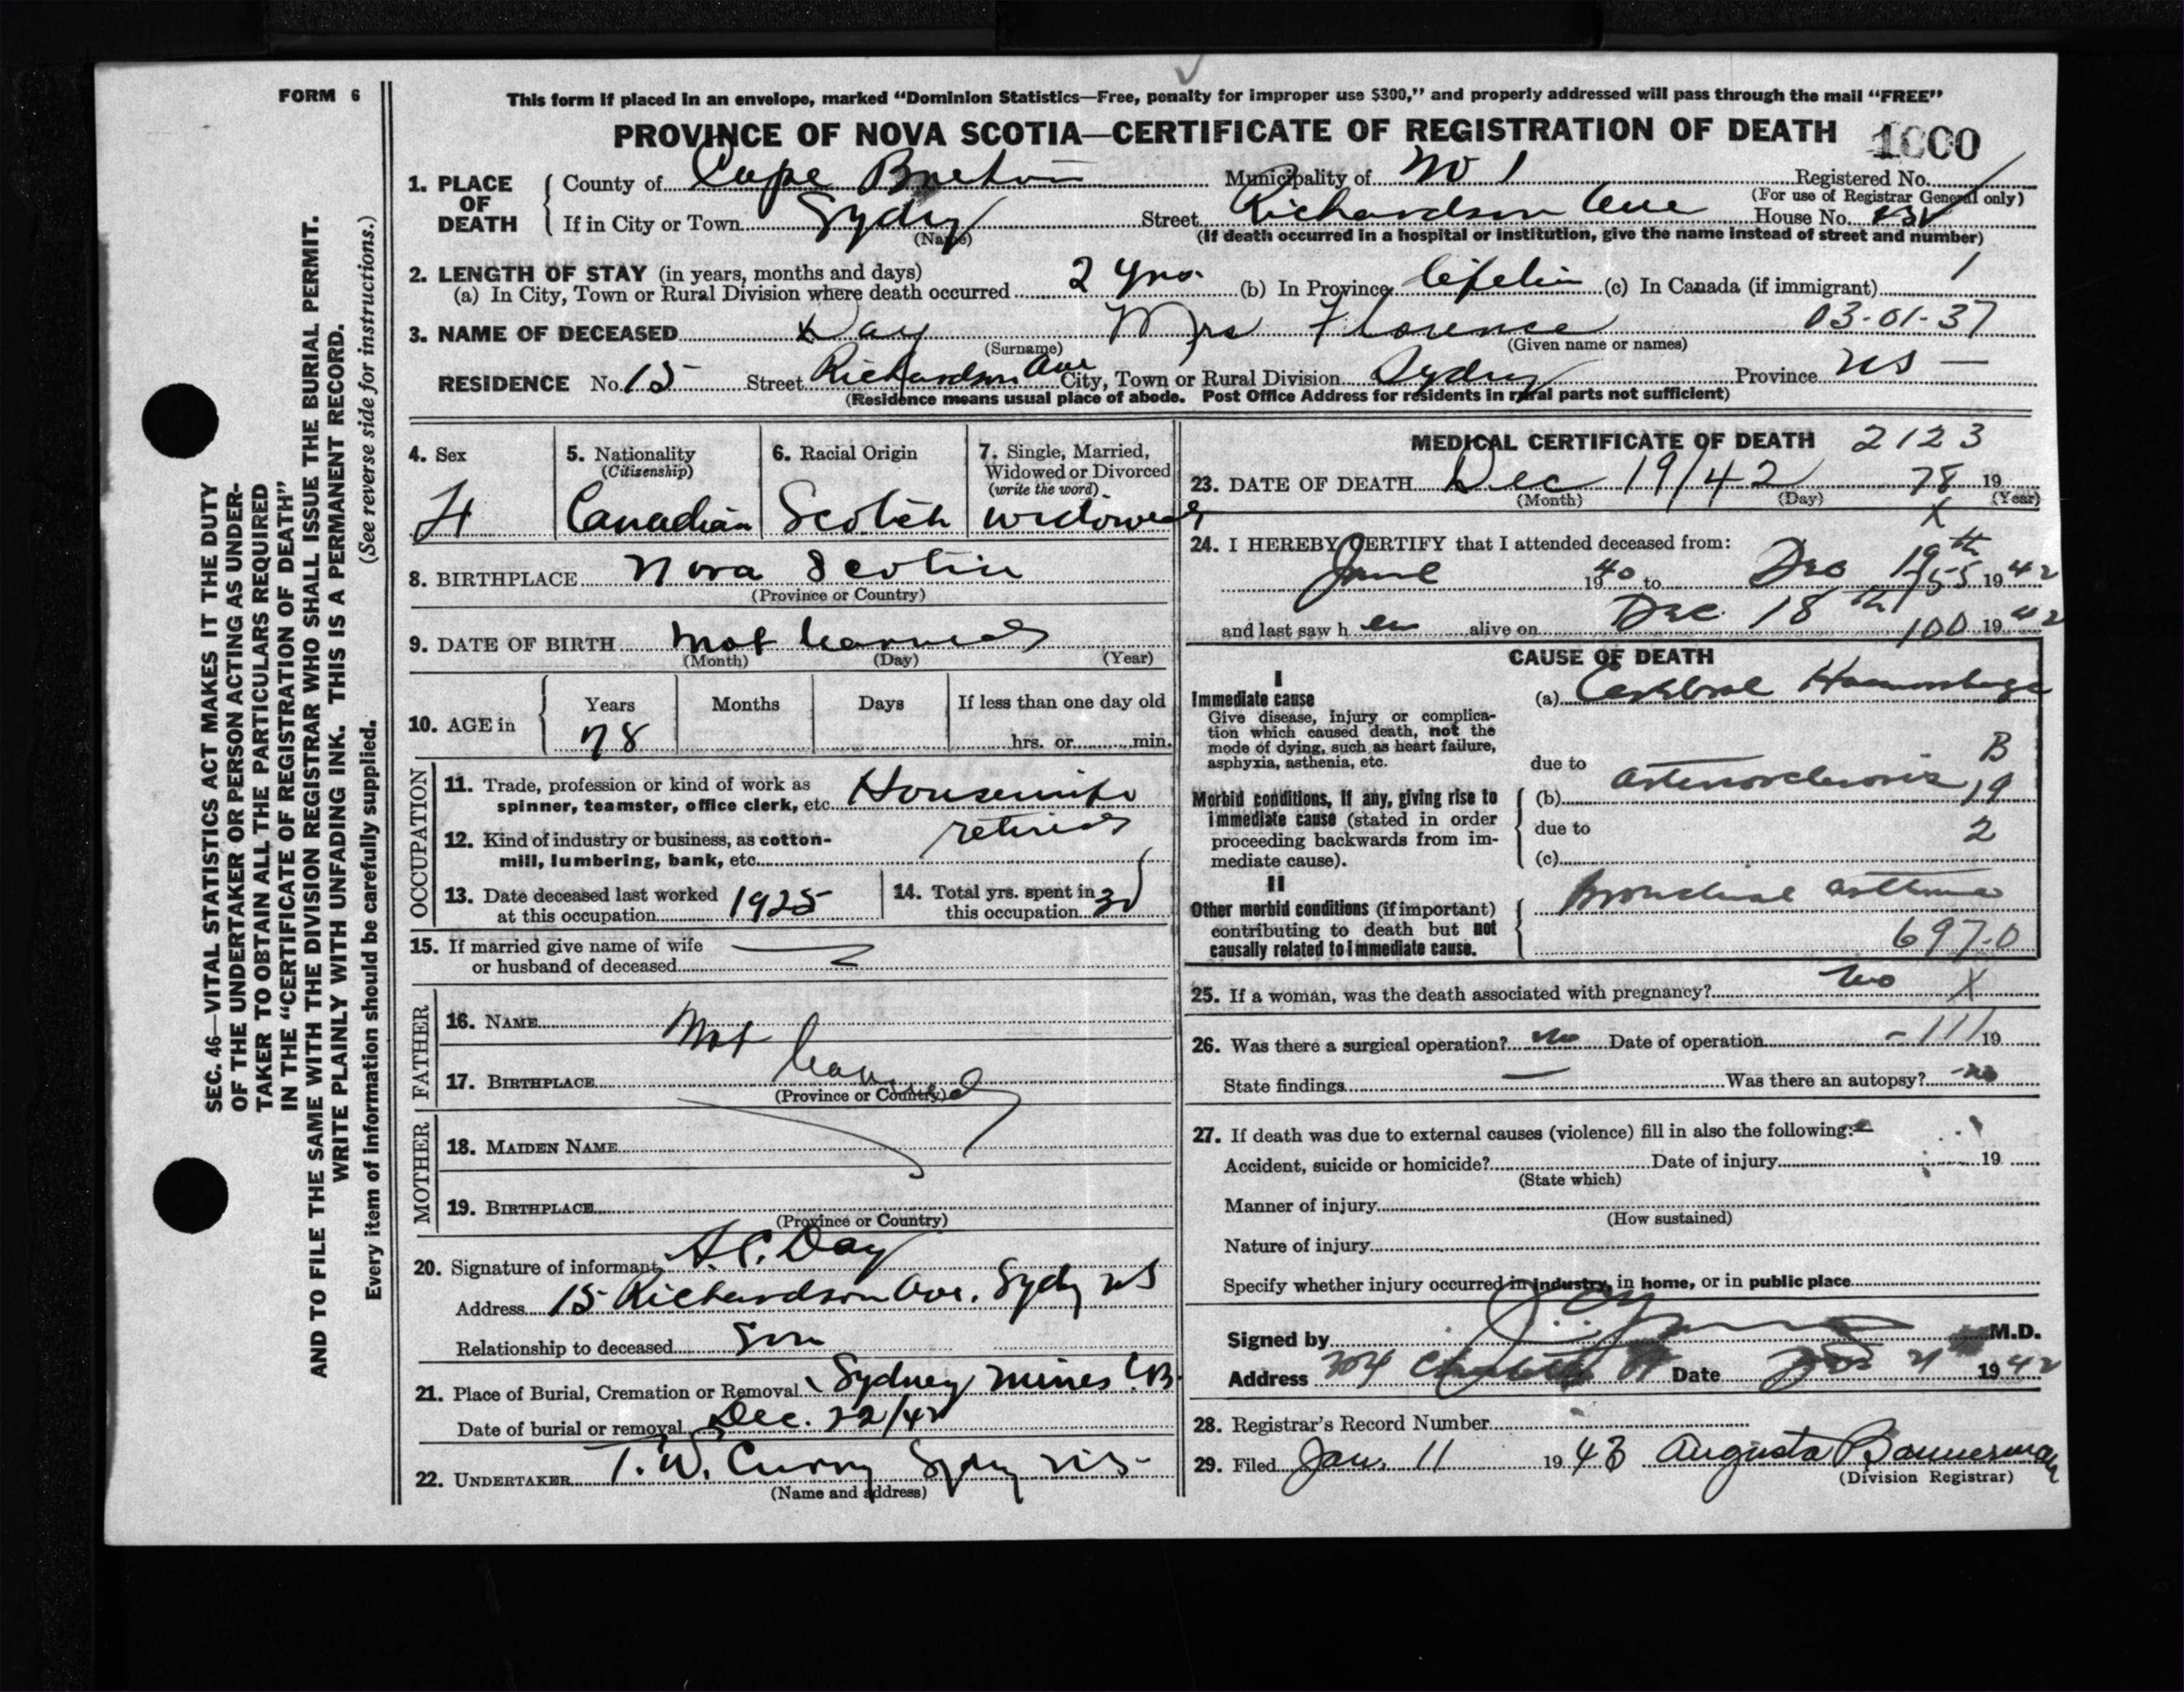 FORM 6
This form if placed in an envelope, marked “Dominion Statistics—Free, penalty for improper use $300,” and properly addressed will pass through the mail “FREE”
PROVINCE OF NOVA SCOTIA—CERTIFICATE OF REGISTRATION OF DEATH 1000
SEC. 46—VITAL STATISTICS ACT MAKES IT THE DUTY
OF THE UNDERTAKER OR PERSON ACTING AS UNDER-
TAKER TO OBTAIN ALL THE PARTICULARS REQUIRED
IN THE “CERTIFICATE OF REGISTRATION OF DEATH”
AND TO FILE THE SAME WITH THE DIVISION REGISTRAR WHO SHALL ISSUE THE BURIAL PERMIT.
WRITE PLAINLY WITH UNFADING INK. THIS IS A PERMANENT RECORD.
Every item of information should be carefully supplied. (See reverse side for instructions.)
1. PLACE OF DEATH
County of Cape Breton Municipality of No 1 Registered No.
(For use of Registrar General only)
If in City or Town Sydney Street Richardson Ave House No.
(Name)
(If death occurred in a hospital or institution, give the name instead of street and number)
2. LENGTH OF STAY (in years, months and days)
(a) In City, Town or Rural Division where death occurred 2 yrs. (b) In Province lifetim (c) In Canada (if immigrant) 1
3. NAME OF DECEASED Day Mrs Florence 03-01-37
(Surname) (Given name or names)
RESIDENCE No. 15 Street Richardson Ave City, Town or Rural Division Sydney Province NS —
(Residence means usual place of abode. Post Office Address for residents in rural parts not sufficient)
4. Sex
F
5. Nationality
(Citizenship)
Canadian
6. Racial Origin
Scotch
7. Single, Married,
Widowed or Divorced
(write the word)
widowed
8. BIRTHPLACE Nova Scotia
(Province or Country)
9. DATE OF BIRTH Not learned
(Month) (Day) (Year)
10. AGE in
Years Months Days If less than one day old
78 hrs. or min.
OCCUPATION
11. Trade, profession or kind of work as
spinner, teamster, office clerk, etc. Housewife
12. Kind of industry or business, as cotton-
mill, lumbering, bank, etc. retired
13. Date deceased last worked
at this occupation 1925
14. Total yrs. spent in
this occupation 30
15. If married give name of wife
or husband of deceased —
FATHER
16. NAME Not
17. BIRTHPLACE learned
(Province or Country)
MOTHER
18. MAIDEN NAME
19. BIRTHPLACE
(Province or Country)
20. Signature of informant A.C. Day
Address 15 Richardson Ave. Sydney NS
Relationship to deceased Son
21. Place of Burial, Cremation or Removal Sydney Mines CB.
Date of burial or removal Dec. 22/42
22. UNDERTAKER T. W. Curry Sydney N.S.
(Name and address)
MEDICAL CERTIFICATE OF DEATH 2123
23. DATE OF DEATH Dec 19/42 78 19
(Month) (Day) (Year)
X
24. I HEREBY CERTIFY that I attended deceased from:
June 1940 to Dec 19th 1942
155
and last saw h er alive on Dec. 18th 1942
100
CAUSE OF DEATH
I
Immediate cause
Give disease, injury or complica-
tion which caused death, not the
mode of dying, such as heart failure,
asphyxia, asthenia, etc.
(a) Cerebral Haemorrhage
B
due to
Morbid conditions, if any, giving rise to
immediate cause (stated in order
proceeding backwards from im-
mediate cause).
(b) arteriosclerosis 19
due to 2
(c)
II
Other morbid conditions (if important)
contributing to death but not
causally related to immediate cause.
Bronchial asthma
697.0
25. If a woman, was the death associated with pregnancy? no X
26. Was there a surgical operation? no Date of operation - 111 19
State findings — Was there an autopsy? no
27. If death was due to external causes (violence) fill in also the following:
Accident, suicide or homicide? Date of injury 19
(State which)
Manner of injury
(How sustained)
Nature of injury
Specify whether injury occurred in industry, in home, or in public place
Signed by M.D.
Address 204 Charlotte St Date 1942
28. Registrar’s Record Number
29. Filed Jan. 11 1943 Augusta Bannerman
(Division Registrar)